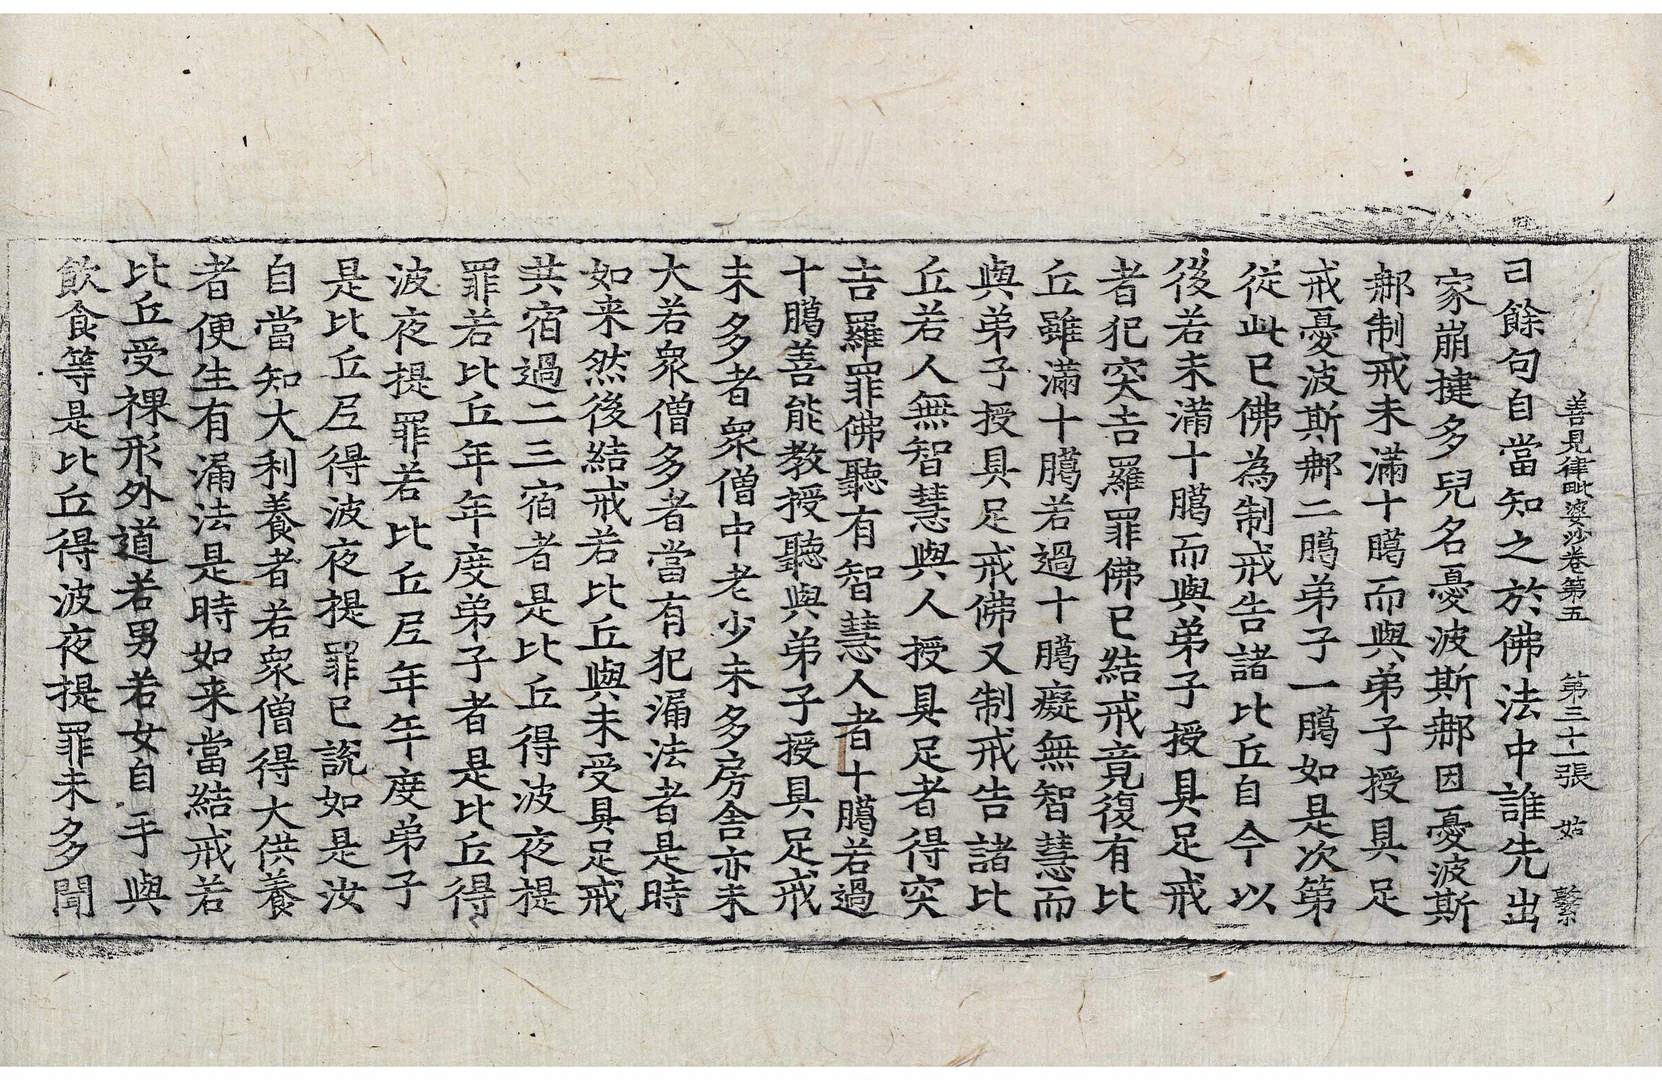 善見律毗婆沙卷第五 第三十二張 姑 繫
曰餘句自當知之於佛法中誰先出
家崩揵多兒名憂波斯𨚗因憂波斯
𨚗制戒未滿十臈而與弟子授具足
戒憂波斯𨚗二臈弟子一臈如是次第
從此已佛為制戒告諸比丘自今以
後若未滿十臈而與弟子授具足戒
者犯突吉羅罪佛已結戒竟復有比
丘雖滿十臈若過十臈癡無智慧而
與弟子授具足戒佛又制戒告諸比
丘若人無智慧與人授具足者得突
吉羅罪佛聽有智慧人者十臈若過
十臈善能教授聽與弟子授具足戒
未多者眾僧中老少未多房舍亦未
大若眾僧多者當有犯漏法者是時
如来然後結戒若比丘與未受具足戒
共宿過二三宿者是比丘得波夜提
罪若比丘年年度弟子者是比丘得
波夜提罪若比丘尼年年度弟子
是比丘尼得波夜提罪已說如是汝
自當知大利養者若眾僧得大供養
者便生有漏法是時如来當結戒若
比丘受裸形外道若男若女自手與
飲食等是比丘得波夜提罪未多聞